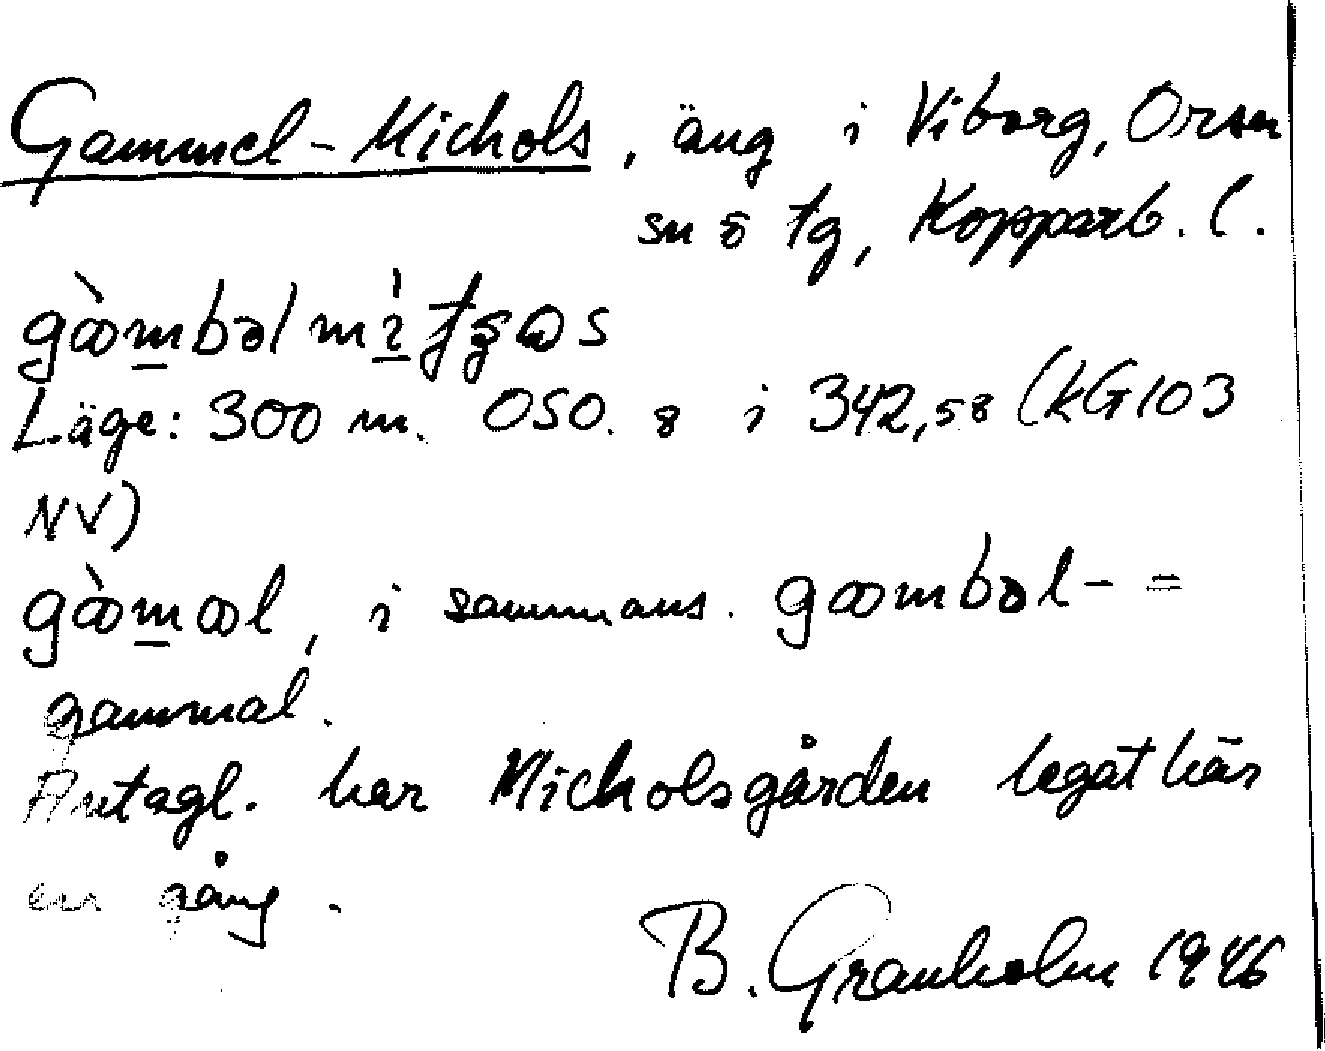 Gammel-Michols, äng i Viborg, Orsa
sn o tg, Kopparb. l.
Läge: 300 m. OSO. 8 i 342,58 (kG103
NV)
gòmol, i sammans. gombəl- =
gammal.
Antagl. har Micholsgården legat här
en gång.
B. Granholm 1946